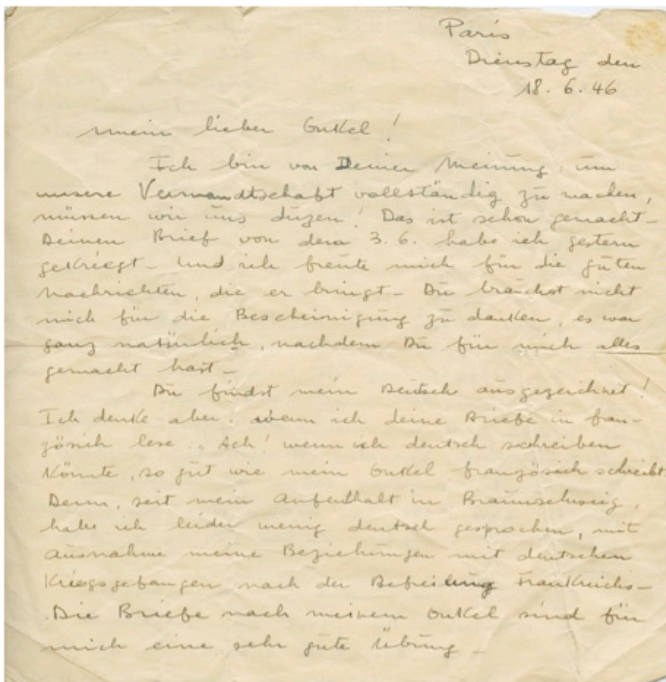 Paris
Dienstag den
18. 6. 46
Mein lieber Onkel!
Ich bin von Deiner Meinung: um
unsere Verwandtschaft vollständig zu machen,
müssen wir uns duzen! Das ist schon gemacht-
Deinen Brief von dem 3. 6. habe ich gestern
gekriegt- Und ich freute mich für die guten
Nachrichten, die er bringt- Du brauchst nicht
mich für die Bescheinigung zu danken, es war
ganz natürlich, nachdem Du für mich alles
gemacht hast-
Du findst mein Deutsch ausgezeichnet!
Ich denke aber, wenn ich deine Briefe in fran-
zösich lese: "Ach! wenn ich deutsch schreiben
könnte, so gut wie mein Onkel französich schreibt
Denn, seit mein Aufenthalt in Braunschweig,
habe ich leider wenig deutsch gesprochen, mit
Ausnahme meine Beziehungen mit deutschen
Kriegsgefangen nach der Befreiung Frankreichs-
Die Briefe nach meinem Onkel sind für
mich eine sehr gute Übung-